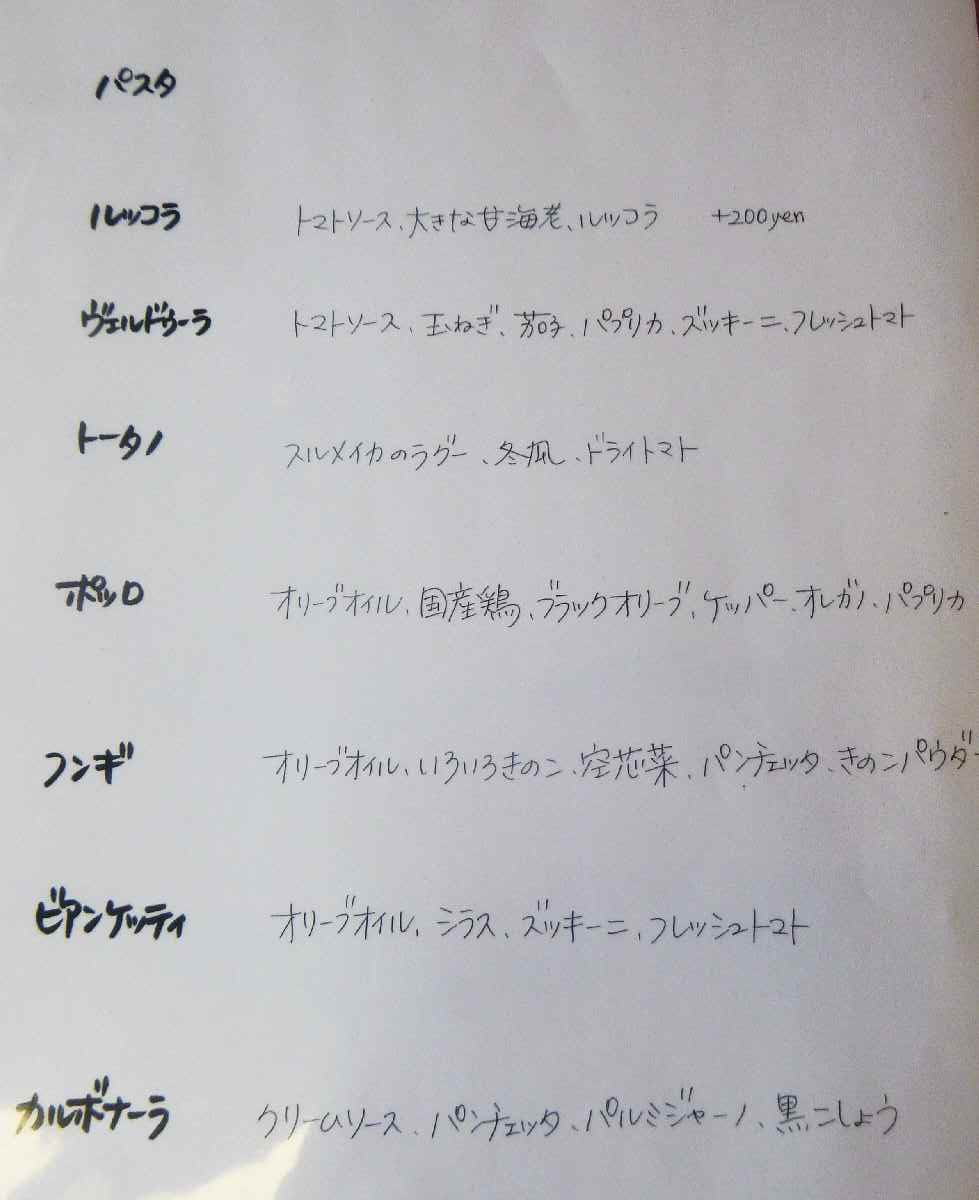 パスタ
ルッコラ トマトソース、大きな甘海老、ルッコラ +200yen
ヴェルドゥーラ トマトソース、玉ねぎ、茄子、パプリカ、ズッキーニ、フレッシュトマト
トータノ スルメイカのラグー、冬瓜、ドライトマト
ポッロ オリーブオイル、国産鶏、ブラックオリーブ、ケッパー、オレガノ、パプリカ
フンギ オリーブオイル、いろいろきのこ、空芯菜、パンチェッタ、きのこパウダー
ビアンケッティ オリーブオイル、シラス、ズッキーニ、フレッシュトマト
カルボナーラ クリームソース、パンチェッタ、パルミジャーノ、黒こしょう